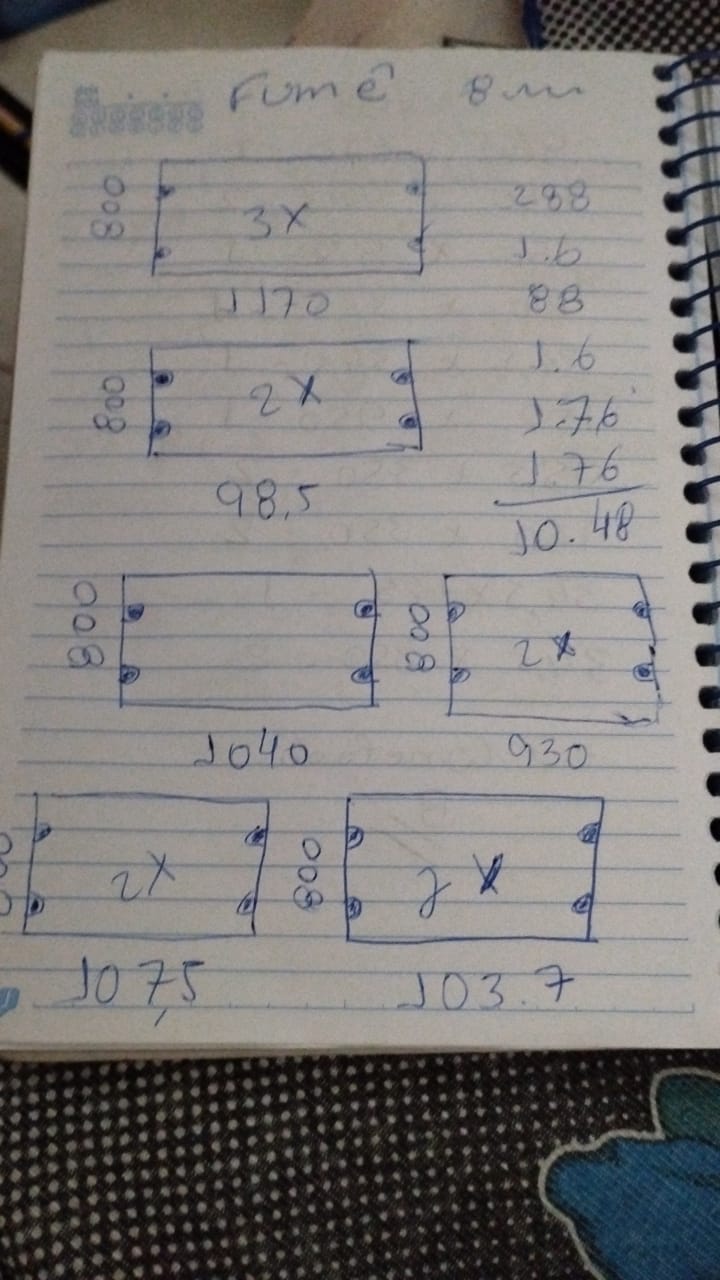 Fumê 8mm
800 3x 288
1.6
1170 88
800 2x 1.6
1.76
98,5 1.76
10.48
800 800 2x
1040 930
2x 800 2x
107,5 103.7